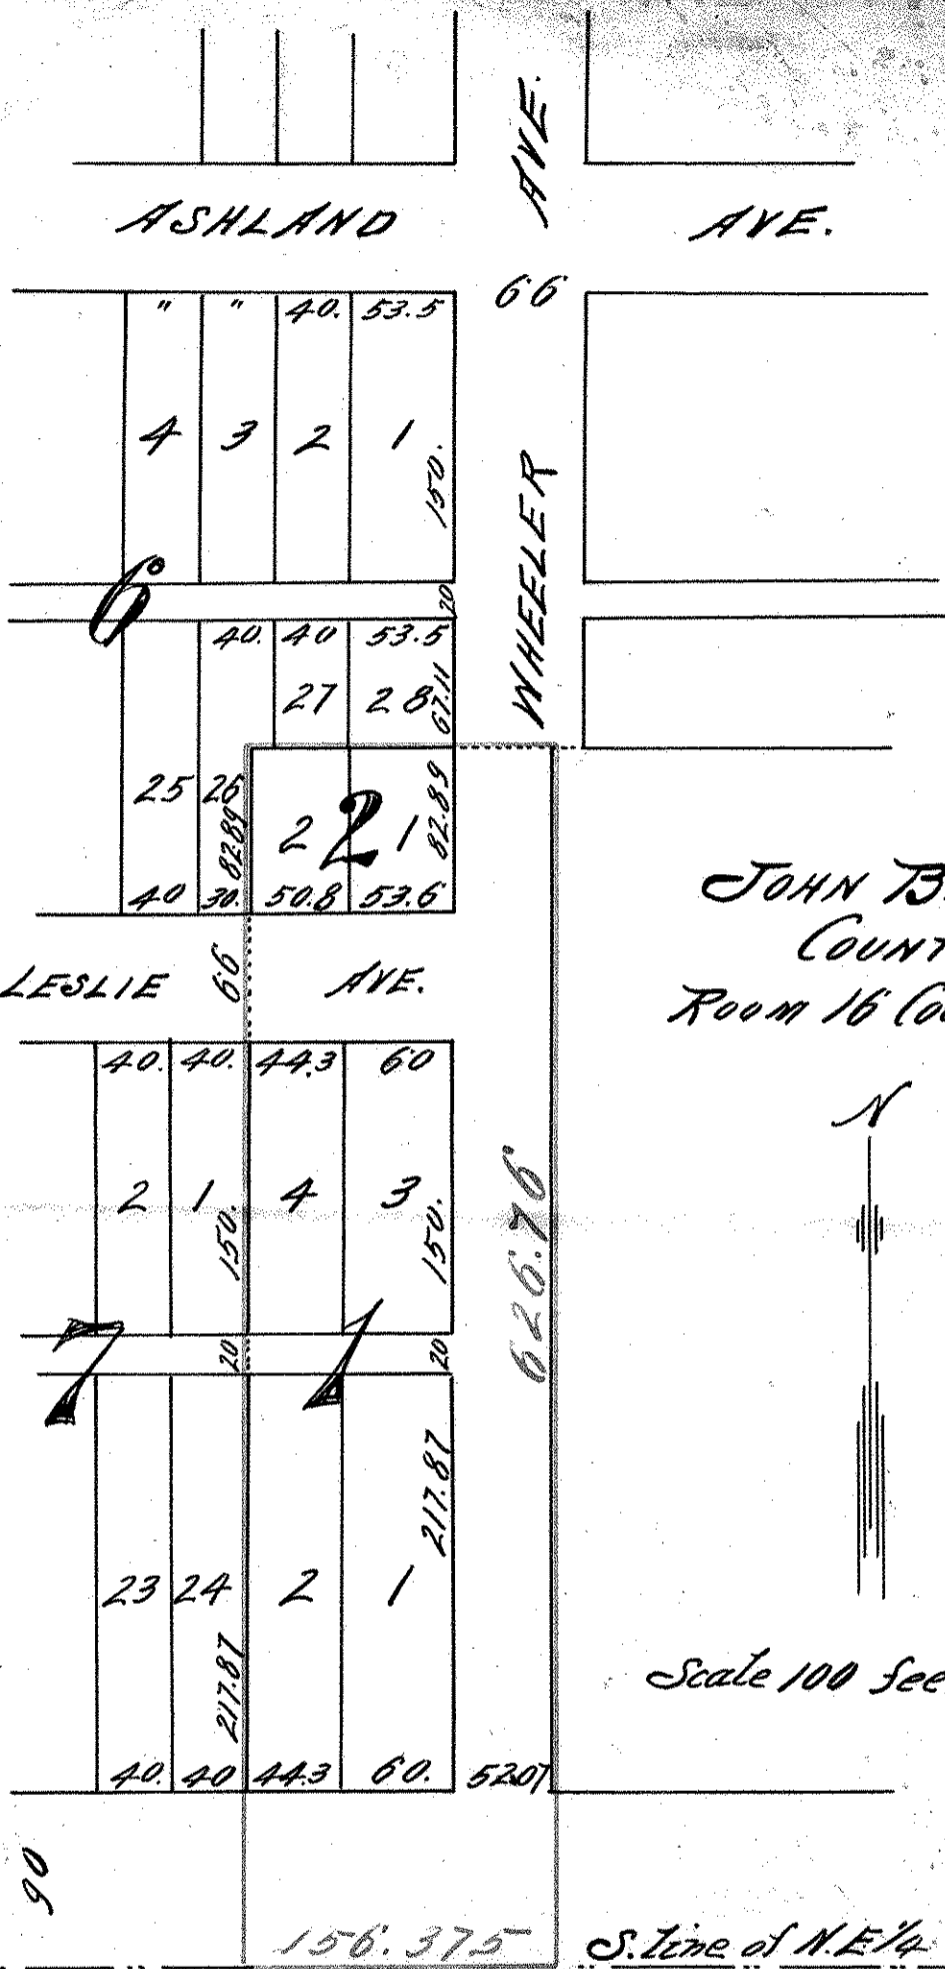 AVE.
ASHLAND AVE.
66
" " 40. 53.5
4 3 2 1
150.
WHEELER
6
20
40. 40 53.5
27 28
67.11
25 26
82.89
2 2 1
82.89
40 30. 50.8 53.6
JOHN B.
COUNT
ROOM 16 CO
LESLIE 66 AVE.
40. 40. 44.3 60
N
2 1 4 3
150. 150.
626.76
7 1
20 20
217.87
23 24 2 1
217.87
Scale 100 fee
40. 40 44.3 60. 52.07
90
156.375
S. Line of N.E 1/4